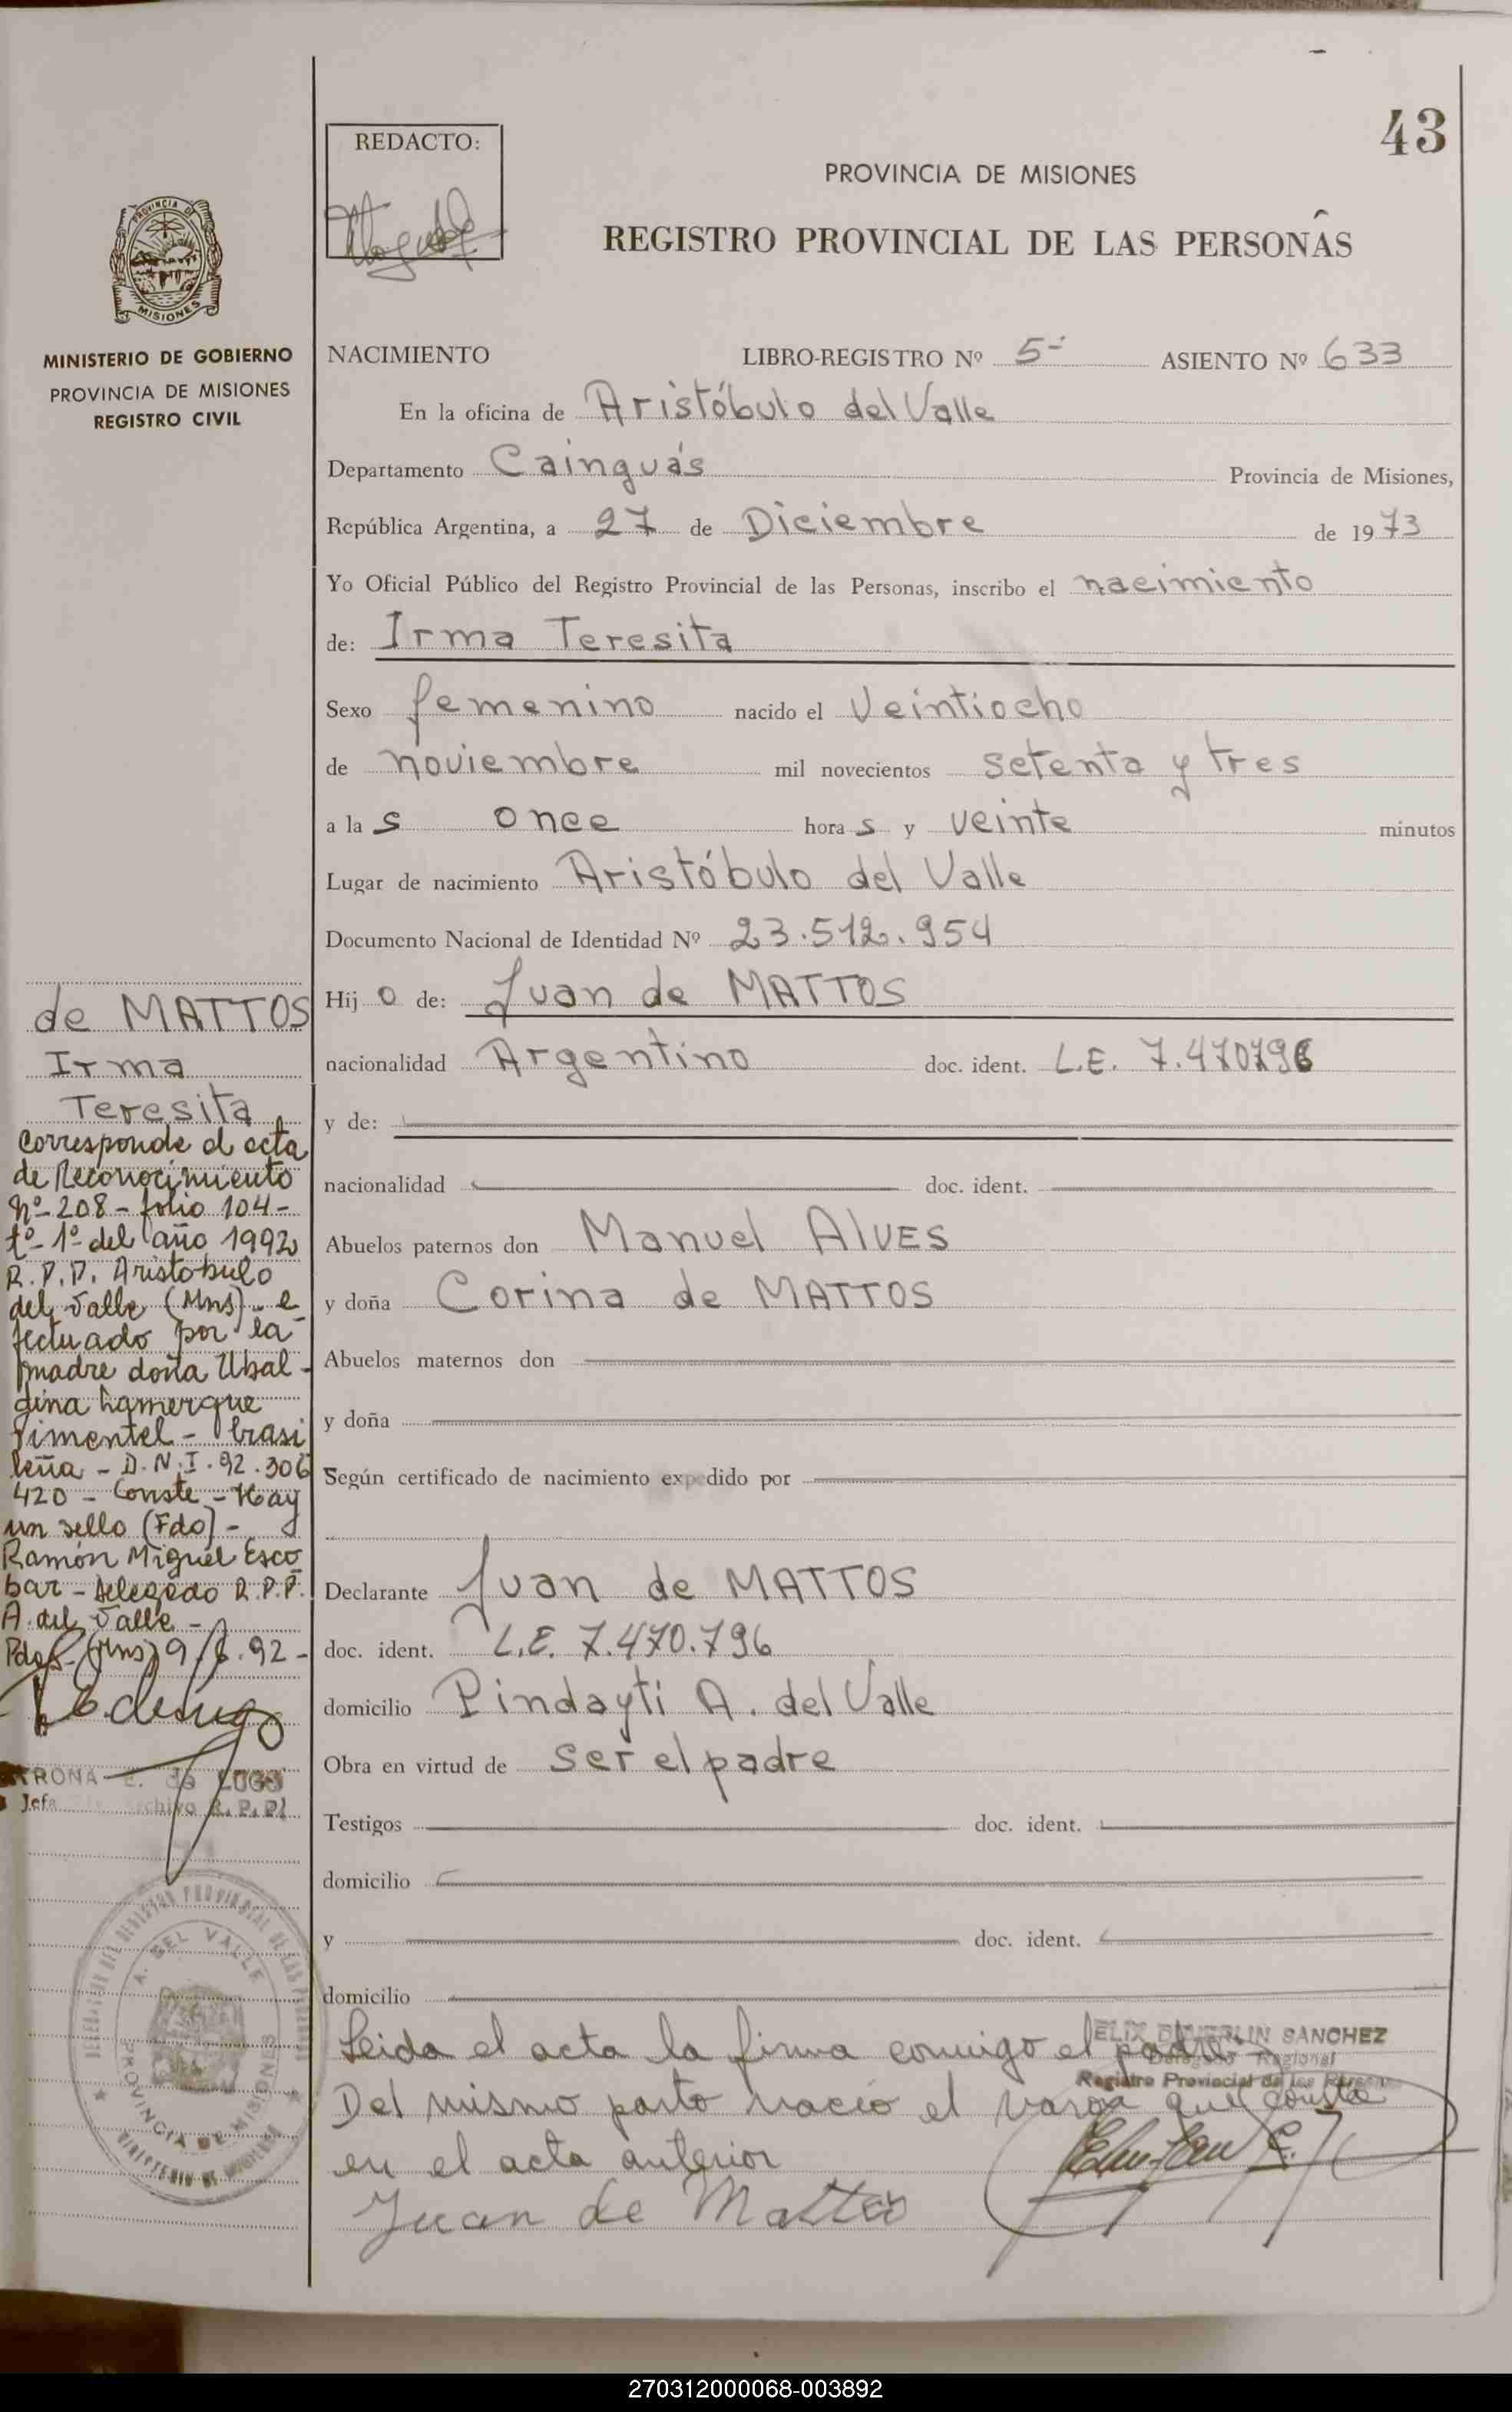 43
REDACTO:
PROVINCIA DE MISIONES
REGISTRO PROVINCIAL DE LAS PERSONAS
PROVINCIA DE
MISIONES
MINISTERIO DE GOBIERNO
PROVINCIA DE MISIONES
REGISTRO CIVIL
NACIMIENTO LIBRO-REGISTRO Nº 5- ASIENTO Nº 633
En la oficina de Aristóbulo del Valle
Departamento Cainguás Provincia de Misiones,
República Argentina, a 27 de Diciembre de 1973
Yo Oficial Público del Registro Provincial de las Personas, inscribo el nacimiento
de: Irma Teresita
Sexo femenino nacido el Veintiocho
de noviembre mil novecientos setenta y tres
a la s once hora s y veinte minutos
Lugar de nacimiento Aristóbulo del Valle
Documento Nacional de Identidad Nº 23.512.954
Hij o de: Juan de MATTOS
nacionalidad Argentino doc. ident. L.E. 7.470796
y de:
nacionalidad doc. ident.
Abuelos paternos don Manuel ALVES
y doña Corina de MATTOS
Abuelos maternos don
y doña
Según certificado de nacimiento expedido por
Declarante Juan de MATTOS
doc. ident. L.E. 7.470.796
domicilio Pindayti A. del Valle
Obra en virtud de ser el padre
Testigos doc. ident.
domicilio
y doc. ident.
domicilio
Leida el acta la firma conmigo el padre.-
Del mismo parto nació el varon que consta
en el acta anterior
Juan de Mattos
SANCHEZ
Delegado Regional
Registro Provincial de las
de MATTOS
Irma
Teresita
Corresponde el acta
de Reconocimiento
Nº-208-folio 104-
tº-1º del año 1992
R.P.P. Aristobulo
del Valle (Mns)- e
fectuado por la
madre doña Ubal-
dina Lamerque
Pimentel - brasi
leña - D.N.I. 92.306
420 - Conste - Hay
un sello (Fdo)-
Ramón Miguel Esco
bar - Delegado R.P.P.
A. del Valle -
Pdas-(Mns) 9/6.92-
E. de LUGO
Jefa Archivo R.P.P.
DEL REGISTRO PROVINCIAL DE LAS PERSONAS
A. DEL VALLE
PROVINCIA DE MISIONES
270312000068-003892